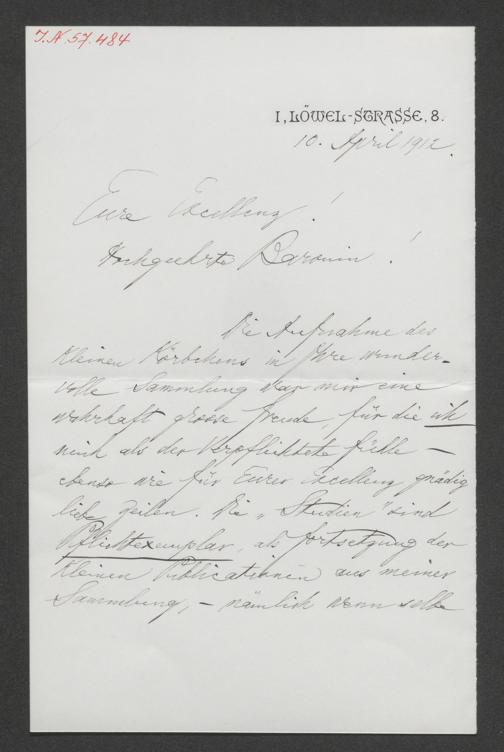 I.N. 57.484
I, LÖWEL-STRASSE, 8.
10. April 1912.
Eure Excellenz!
Hochgeehrte Baronin!
Die Aufnahme des
kleinen Körbchens in Ihre wunder-
volle Sammlung war mir eine
wahrhaft grosse Freude, für die ich
mich als der Verpflichtete fühle –
ebenso wie für Eurer Excellenz gnädig
liebe Zeilen. Die „Studien" sind
Pflichtexemplar, als Fortsetzung der
kleinen Publicationen aus meiner
Sammlung, – nämlich wenn selbe